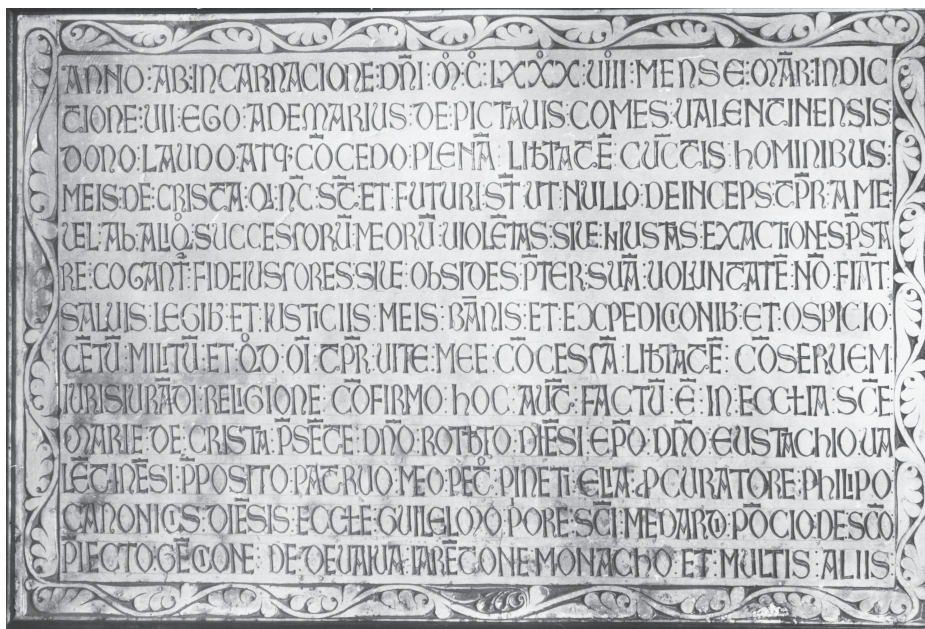 ANNO:AB:INCARNACIONE:DNI:M̊:C̊:LXXX̊:VIII:MENSE:MAR:INDIC
TIONE:VII:EGO:ADEMARIUS:DE:PICTAUIS:COMES:UALENTINENSIS
DONO:LAUDO:ATQ:CŌCEDO:PLENĀ:LIBTATĒ:CŪCTIS:hOMINIBUS:
MEIS:DE:CRISTA:QI:NC:ST̄:ET:FUTURI:ST̄:UT:NULLO:DEINCEPS:TPR:A:ME
UEL:Ab:ALIQ̊:SUCCESSORU:MEORŪ:UIOLĒTAS:SIUE:NIUSTAS:EXACTIONES:PSTA
RE:COGANT̄:FIDEIUSSORES:SIUE:ObSIDES:PTER:SUĀ:UOLUNTATĒ:NŌ:FIĀT
SALUIS:LEGIB:ET:IUSTICIIS:MEIS:BĀNIS:ET:EXPEDICIONIB:ET:OSPICIO
CĒTU:MILITŪ:ET:QD̊:OI:TPR:UITE:MEE:CŌCESSA:LIBTATĒ:CŌSERUEM
IURISIURĀDI:RELIGIONE:CŌFIRMO:hOC:AUT̄:FACTU:Ē:IN:ECCLIA:SCE
MARIE:DE:CRISTA:PSĒTE:DNO:ROTBTO:DIĒSI:EPO:DNO:EUSTACHIO:UA
LĒTINĒSI:PPOSITO:PATRUO:MEO:PET̊:PINETI:ELIA:PCURATORE:PhILIPO
CANONICS:DIĒSIS:ECCLE:GUILELMO:PORE:SCI:MEDARDI:PŌCIO:DESCO
PIECTO:GĒTONE:DE:DEUAIUA:IARĒTONE:MONACHO:ET:MULTIS:ALIIS